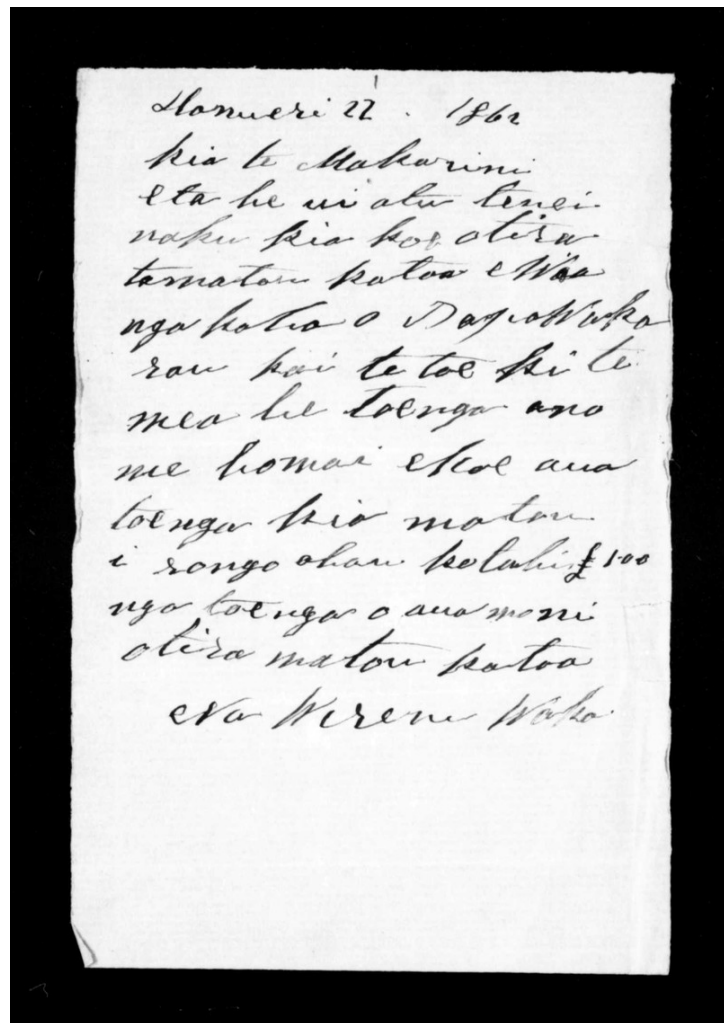 Hanueri 22. 1862
kia te Makarini
eta he ui atu tenei
naku kia koe otira
tamatou katoa
nga katoa o
rau kai te toe ki te
mea he toenga ano
me homai ekoe aua
toenga kia matou
i rongo ahau kotahi £100
nga toenga o aua moni
otira matou katoa
eNa Wiremu Waka